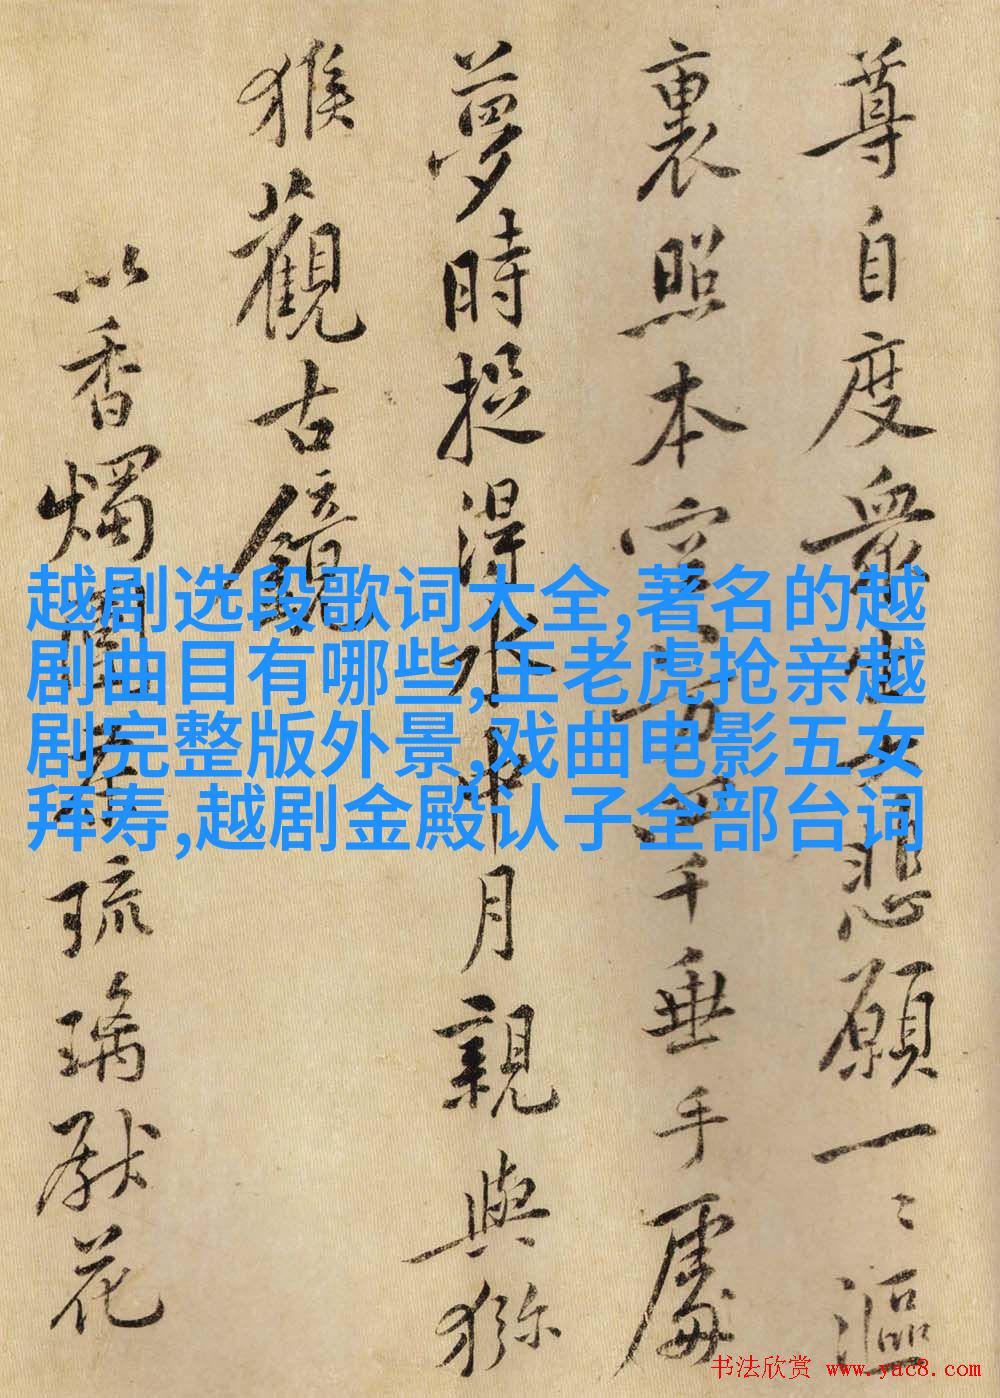 尊自度眾生立悲願一〻漚
裏照本空八方四千垂手處
夢時捉得水中月親與獼
猴觀古鏡
以香燭琉璃獻花
越剧选段歌词大全,著名的越
剧曲目有哪些,王老虎抢亲越
剧完整版外景,戏曲电影五女
拜寿,越剧金殿认子全部台词
书法欣赏 www.yac8.com